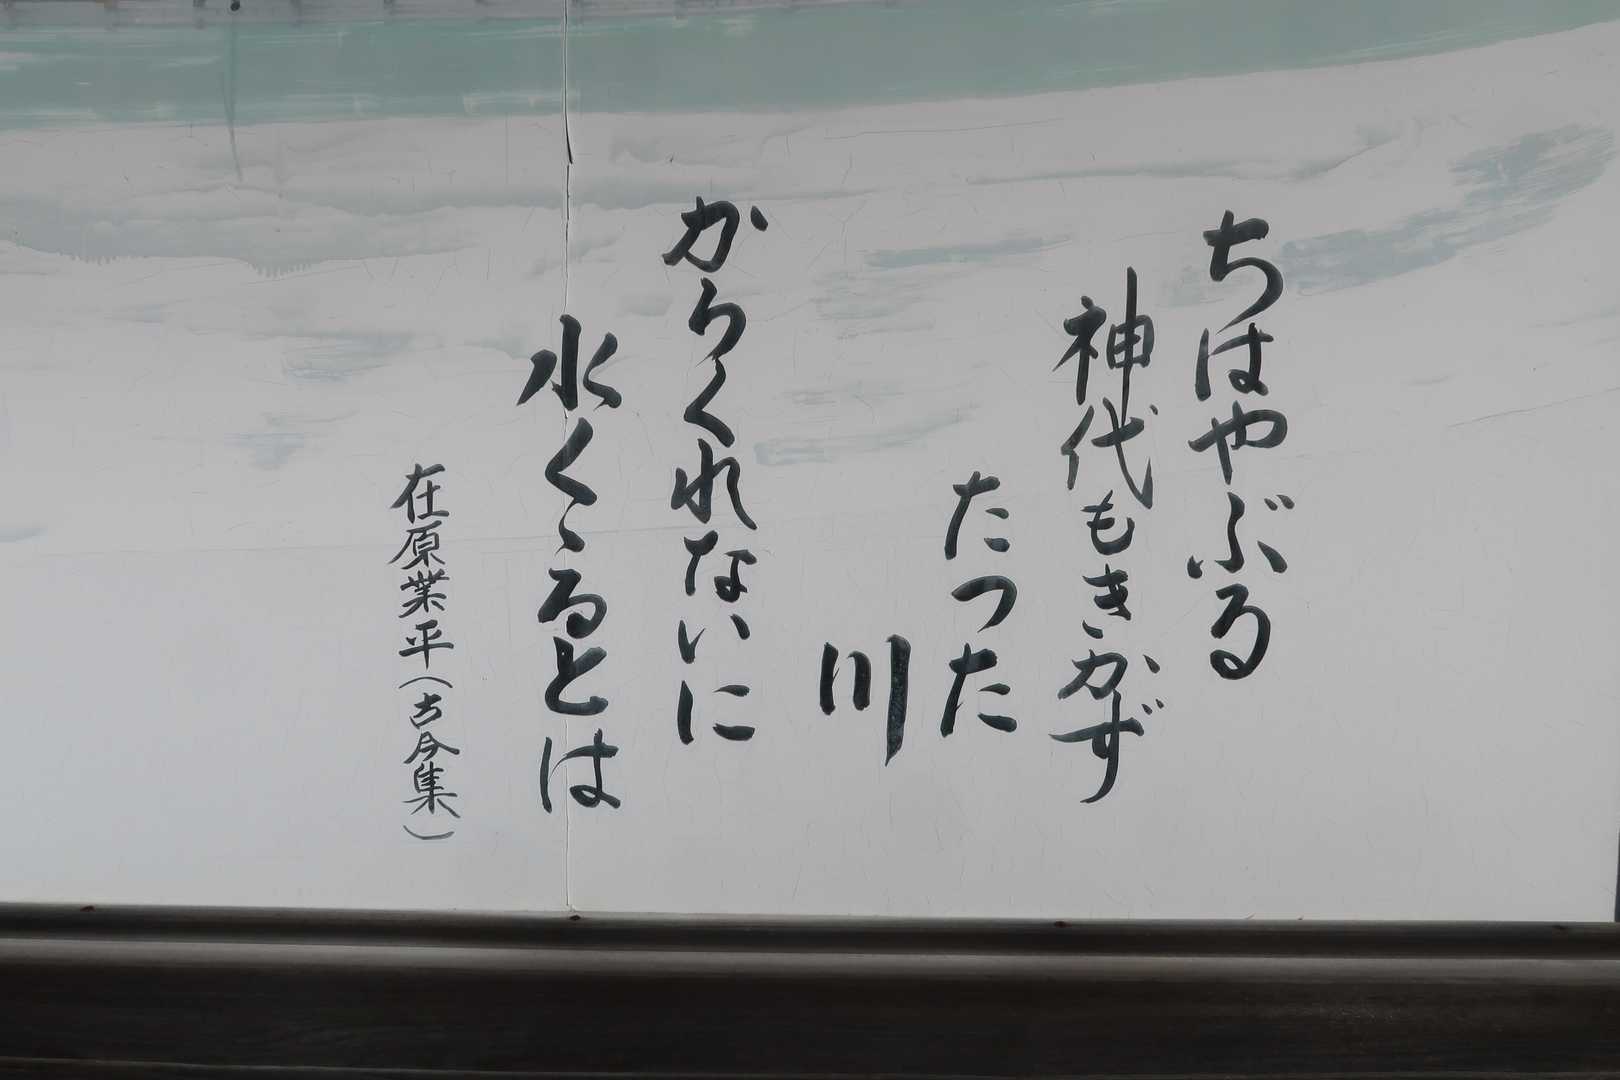 ちはやぶる
神代もきかず
たつた
川
からくれないに
水くゝるとは
在原業平(古今集)